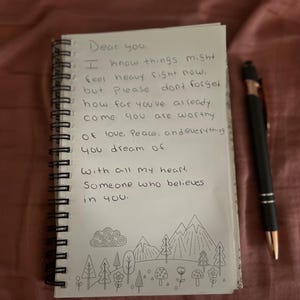 Dear you.
I know things might
feel heavy right now,
but Please dont forget
how far you've already
come you are worthy
of love, Peace, and everything
you dream of
with all my heart,
Someone who believes
in you.